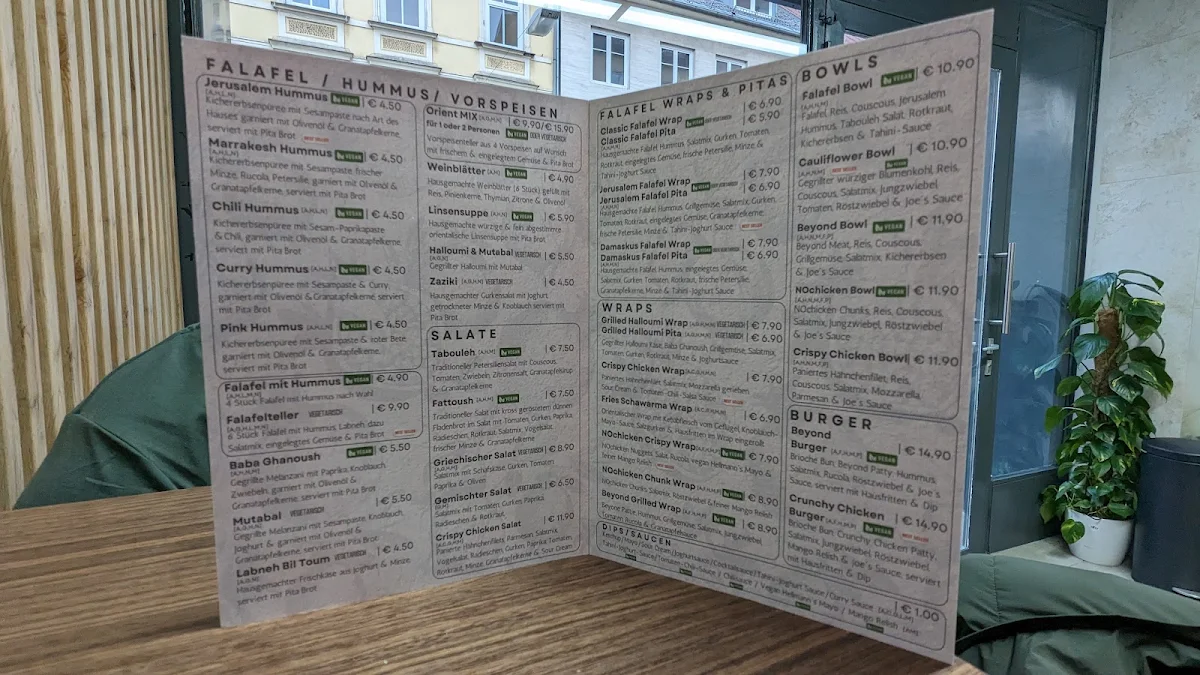 FALAFEL / HUMMUS/ VORSPEISEN
Jerusalem Hummus VEGAN | € 4.50
Kichererbsenpüree mit Sesampaste nach Art des
Hauses garniert mit Olivenöl & Granatapfelkerne,
serviert mit Pita Brot
Marrakesh Hummus VEGAN | € 4.50
Kichererbsenpüree mit Sesampaste frischer
Minze, Rucola, Petersilie, garniert mit Olivenöl &
Granatapfelkerne, serviert mit Pita Brot
Chili Hummus VEGAN | € 4.50
Kichererbsenpüree mit Sesam-Paprikapaste
& Chili, garniert mit Olivenöl & Granatapfelkerne,
serviert mit Pita Brot
Curry Hummus VEGAN | € 4.50
Kichererbsenpüree mit Sesampaste & Curry,
garniert mit Olivenöl & Granatapfelkerne, serviert
mit Pita Brot
Pink Hummus VEGAN | € 4.50
Kichererbsenpüree mit Sesampaste & roter Bete
garniert mit Olivenöl & Granatapfelkerne,
serviert mit Pita Brot
Falafel mit Hummus VEGAN | € 4.90
4 Stück Falafel mit Hummus nach Wahl
Falafelteller VEGETARISCH | € 9.90
8 Stück Falafel mit Hummus, Labneh, dazu
Salatmix, eingelegtes Gemüse & Pita Brot
Baba Ghanoush VEGAN | € 5.50
Gegrillte Melanzani mit Paprika, Knoblauch,
Zwiebeln, garniert mit Olivenöl &
Granatapfelkerne, serviert mit Pita Brot
Mutabal VEGETARISCH | € 5.50
Gegrillte Melanzani mit Sesampaste, Knoblauch,
Joghurt & garniert mit Olivenöl &
Granatapfelkerne, serviert mit Pita Brot
Labneh Bil Toum VEGETARISCH | € 4.50
Hausgemachter Frischkäse aus Joghurt & Minze,
serviert mit Pita Brot
Orient MIX | € 9,90/€ 15.90
für 1 oder 2 Personen VEGAN ODER VEGETARISCH
Vorspeisenteller aus 4 Vorspeisen auf Wunsch
mit frischem & eingelegtem Gemüse & Pita Brot
Weinblätter VEGAN | € 4.90
Hausgemachte Weinblätter (6 Stück) gefüllt mit
Reis, Pinienkerne, Thymian, Zitrone & Olivenöl
Linsensuppe VEGAN | € 5.90
Hausgemachte würzige & fein abgestimmte
orientalische Linsensuppe mit Pita Brot
Halloumi & Mutabal VEGETARISCH | € 5.50
Gegrillter Halloumi mit Mutabal
Zaziki VEGETARISCH | € 4.50
Hausgemachter Gurkensalat mit Joghurt,
getrockneter Minze & Knoblauch serviert mit
Pita Brot
SALATE
Tabouleh VEGAN | € 7.50
Traditioneller Petersiliensalat mit Couscous,
Tomaten, Zwiebeln, Zitronensaft, Granatapfelsirup
& Granatapfelkerne
Fattoush VEGAN | € 7.50
Traditioneller Salat mit kross geröstetem dünnen
Fladenbrot im Salat mit Tomaten, Gurken, Paprika
Radieschen, Rotkraut, Salatmix, Vogelsalat,
frischer Minze & Granatapfelkerne
Griechischer Salat VEGETARISCH | € 8.90
Salatmix mit Schafskäse, Gurken, Tomaten,
Paprika & Oliven
Gemischter Salat VEGETARISCH | € 6.50
Salatmix mit Tomaten, Gurken, Paprika,
Radieschen & Rotkraut,
Crispy Chicken Salat | € 11.90
Panierte Hähnchenfilets, Parmesan, Salatmix,
Vogelsalat, Radieschen, Gurken, Paprika, Tomaten,
Rotkraut, Minze, Granatapfelkerne & Sour Cream
FALAFEL WRAPS & PITAS
Classic Falafel Wrap | € 6.90
Classic Falafel Pita VEGAN | € 5.90
Hausgemachte Falafel, Hummus, Salatmix, Gurken, Tomaten,
Rotkraut, eingelegtes Gemüse, frische Petersilie, Minze &
Tahini-Joghurt Sauce
Jerusalem Falafel Wrap | € 7.90
Jerusalem Falafel Pita VEGAN | € 6.90
Hausgemachte Falafel, Hummus, Grillgemüse, Salatmix, Gurken,
Tomaten, Rotkraut, eingelegtes Gemüse, Granatapfelkerne,
frische Petersilie, Minze & Tahini-Joghurt Sauce
Damaskus Falafel Wrap | € 7.90
Damaskus Falafel Pita VEGAN | € 6.90
Hausgemachte Falafel, Hummus, eingelegtes Gemüse,
Salatmix, Gurken, Tomaten, Rotkraut, frische Petersilie,
Granatapfelkerne, Minze & Tahini-Joghurt Sauce
WRAPS
Grilled Halloumi Wrap VEGETARISCH | € 7.90
Grilled Halloumi Pita VEGETARISCH | € 6.90
Gegrillter Halloumi Käse, Baba Ghanoush, Grillgemüse, Salatmix,
Tomaten, Gurken, Rotkraut, Minze & Joghurtsauce
Crispy Chicken Wrap | € 7.90
Paniertes Hähnchenfilet, Salatmix, Mozzarella gerieben
Sour Cream & Tomaten - Chili - Salsa Sauce
Fries Schawarma Wrap | € 6.90
Orientalischer Wrap mit Kebabfleisch vom Geflügel, Knoblauch-
Mayo - Sauce, Salzgurken & Hausfritten im Wrap eingerollt
NOchicken Crispy Wrap VEGAN | € 7.90
NOchicken Nuggets, Salat, Rucola, vegan Hellmann´s Mayo &
feiner Mango Relish
NOchicken Chunk Wrap VEGAN | € 8.90
NOchicken Chunks, Salatmix, Röstzwiebel & feiner Mango Relish
Beyond Grilled Wrap VEGAN | € 8.90
Beyond Pattie, Hummus, Grillgemüse, Salatmix, Jungzwiebel,
Tomaten, Rucola & Granatapfelkerne
DIPS/SAUCEN
Ketchup/Mayo/Sour Cream/Joghurtsauce/Cocktailsauce/Tahini-Joghurt Sauce/Curry Sauce
Tahini-Joghurt - Sauce/Tomaten-Chili-Sauce / Chilisauce / Vegan Hellmann´s Mayo / Mango Relish | € 1.00
BOWLS
Falafel Bowl VEGAN | € 10.90
Falafel, Reis, Couscous, Jerusalem
Hummus, Tabouleh Salat, Rotkraut,
Kichererbsen & Tahini-Sauce
Cauliflower Bowl VEGAN | € 10.90
Gegrillter würziger Blumenkohl, Reis,
Couscous, Salatmix, Jungzwiebel
Tomaten, Röstzwiebel & Joe´s Sauce
Beyond Bowl VEGAN | € 11,90
Beyond Meat, Reis, Couscous,
Grillgemüse, Salatmix, Kichererbsen
& Joe´s Sauce
NOchicken Bowl VEGAN | € 11.90
NOchicken Chunks, Reis, Couscous,
Salatmix, Jungzwiebel, Röstzwiebel
& Joe´s Sauce
Crispy Chicken Bowl | € 11.90
Paniertes Hähnchenfilet, Reis,
Couscous, Salatmix, Mozzarella,
Parmesan & Joe´s Sauce
BURGER
Beyond
Burger VEGAN | € 14,90
Brioche Bun, Beyond Patty, Hummus,
Salatmix, Rucola, Röstzwiebel & Joe´s
Sauce, serviert mit Hausfritten & Dip
Crunchy Chicken
Burger VEGAN | € 14.90
Brioche Bun, Crunchy Chicken Patty,
Vegan Hellmann´s Mayo, Salatmix,
Mango Relish & Röstzwiebel, serviert
mit Hausfritten & Dip